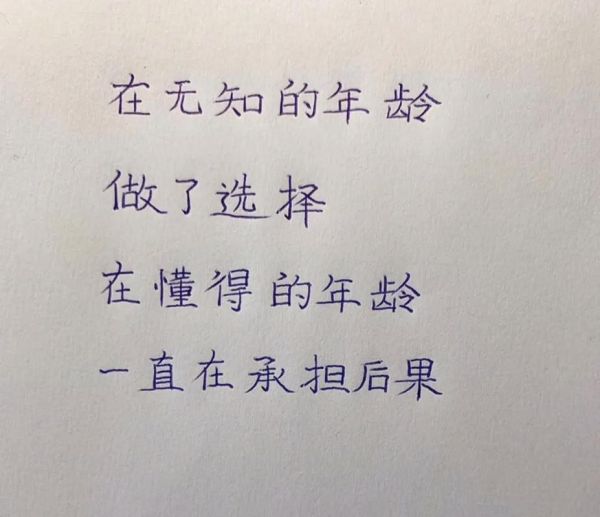 在无知的年龄
做了选择
在懂得的年龄
一直在承担后果